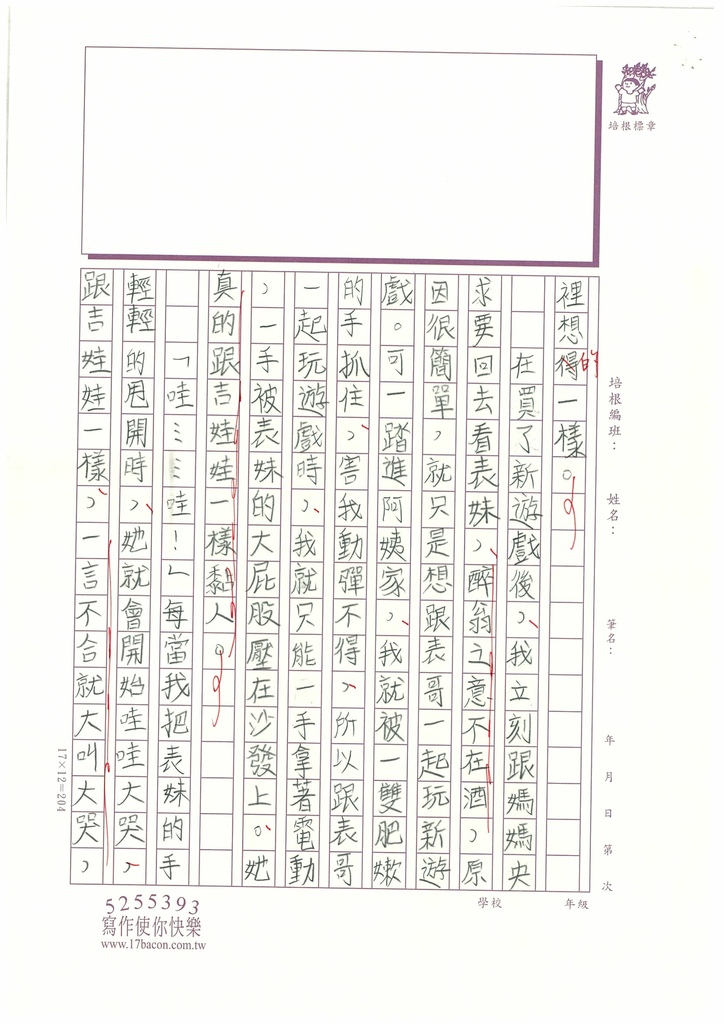 培根標章
培根編班：　姓名：　筆名：　年　月　日　第　次
學校　年級
裡想得一樣。
的
在買了新遊戲後，我立刻跟媽媽央
求要回去看表妹，醉翁之意不在酒，原
因很簡單，就只是想跟表哥一起玩新遊
戲。可一踏進阿姨家，我就被一雙肥嫩
的手抓住，害我動彈不得，所以跟表哥
一起玩遊戲時，我就只能一手拿著電動
，一手被表妹的大屁股壓在沙發上。她
真的跟吉娃娃一樣黏人。
「哇……哇！」每當我把表妹的手
輕輕的甩開時，她就會開始哇哇大哭，
跟吉娃娃一樣，一言不合就大叫大哭，
17×12=204
5255393
寫作使你快樂
www.17bacon.com.tw